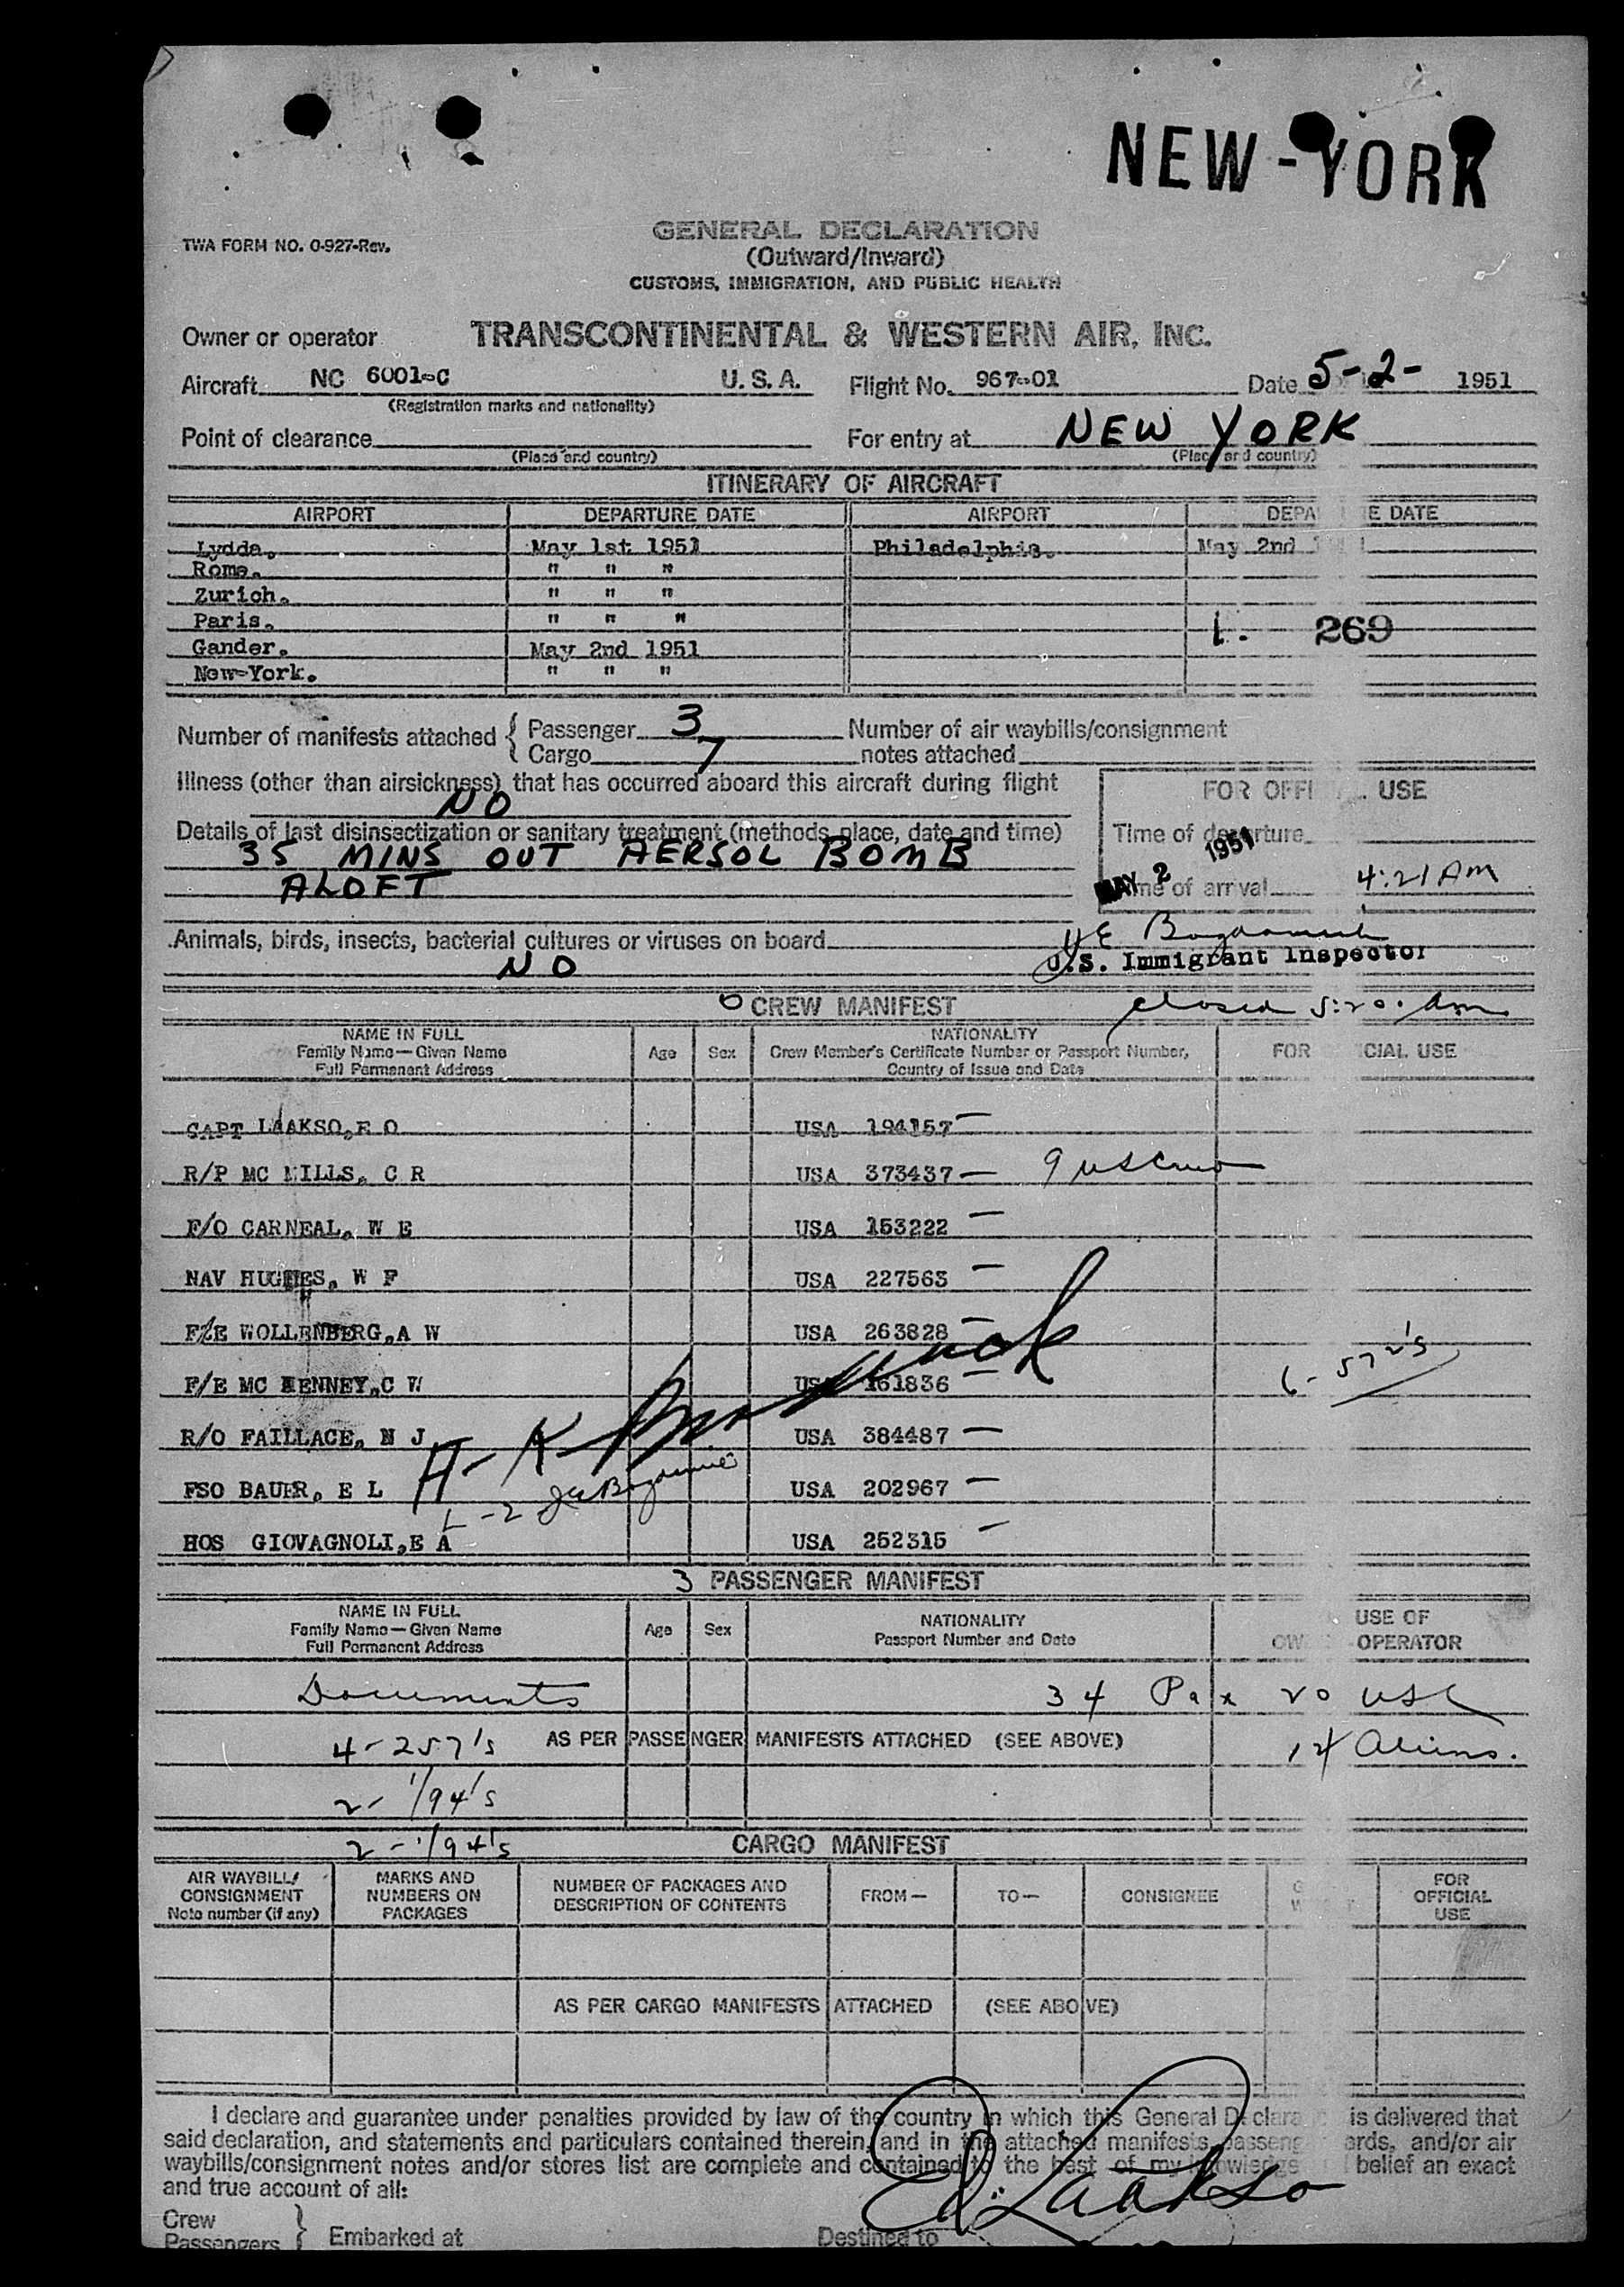 NEW-YORK
GENERAL DECLARATION
TWA FORM NO. O-927-Rev.
(Outward/Inward)
CUSTOMS, IMMIGRATION, AND PUBLIC HEALTH
Owner or operator TRANSCONTINENTAL & WESTERN AIR, INC.
Aircraft NC 6001-C U.S.A. Flight No. 967-01 Date 5-2- 1951
(Registration marks and nationality)
Point of clearance For entry at NEW YORK
(Place and country) (Place and country)
ITINERARY OF AIRCRAFT
AIRPORT DEPARTURE DATE AIRPORT DEPA E DATE
Lydda. May 1st 1951 Philadelphia. May 2nd
Rome. " " "
Zurich. " " "
Paris. " " " 1. 269
Gander. May 2nd 1951
New-York. " " "
Number of manifests attached { Passenger 3 Number of air waybills/consignment
Cargo 7 notes attached
Illness (other than airsickness) that has occurred aboard this aircraft during flight
NO
FOR OFFI USE
Details of last disinsectization or sanitary treatment (methods, place, date and time)
35 MINS OUT AERSOL BOMB
ALOFT
Time of departure
MAY 2 1951
Time of arrival 4:21 AM
Animals, birds, insects, bacterial cultures or viruses on board
NO
U.S. Immigrant Inspector
6 CREW MANIFEST closed 5:20. Am
NAME IN FULL
Family Name—Given Name
Full Permanent Address
Age Sex
NATIONALITY
Crew Member's Certificate Number or Passport Number,
Country of Issue and Date
FOR CIAL USE
CAPT LAAKSO,E O USA 194157 —
R/P MC MILLS, C R USA 373437 — 9
F/O CARNEAL, W E USA 153222 —
NAV HUGHES, W F USA 227563 —
F/E WOLLENBERG,A W USA 263828 —
F/E MC KENNEY,C W USA 161836 — 6-572's
R/O FAILLACE, N J USA 384487 —
FSO BAUER, E L USA 202967 —
L-2
HOS GIOVAGNOLI,E A USA 252315 —
3 PASSENGER MANIFEST
NAME IN FULL
Family Name—Given Name
Full Permanent Address
Age Sex
NATIONALITY
Passport Number and Date
USE OF
OW OPERATOR
Documents 34 Pax 20 USC
4-257's AS PER PASSENGER MANIFESTS ATTACHED (SEE ABOVE) 14 Aliens.
2- 1/94's
2-1/94's CARGO MANIFEST
AIR WAYBILL/
CONSIGNMENT
Note number (if any)
MARKS AND
NUMBERS ON
PACKAGES
NUMBER OF PACKAGES AND
DESCRIPTION OF CONTENTS
FROM— TO— CONSIGNEE
FOR
OFFICIAL
USE
AS PER CARGO MANIFESTS ATTACHED (SEE ABOVE)
I declare and guarantee under penalties provided by law of the country in which this General Declara is delivered that
said declaration, and statements and particulars contained therein, and in the attached manifests, passeng ords, and/or air
waybills/consignment notes and/or stores list are complete and contained to the best of my knowledge belief an exact
and true account of all:
Ed. Laakso
Crew
Passengers } Embarked at Destined to